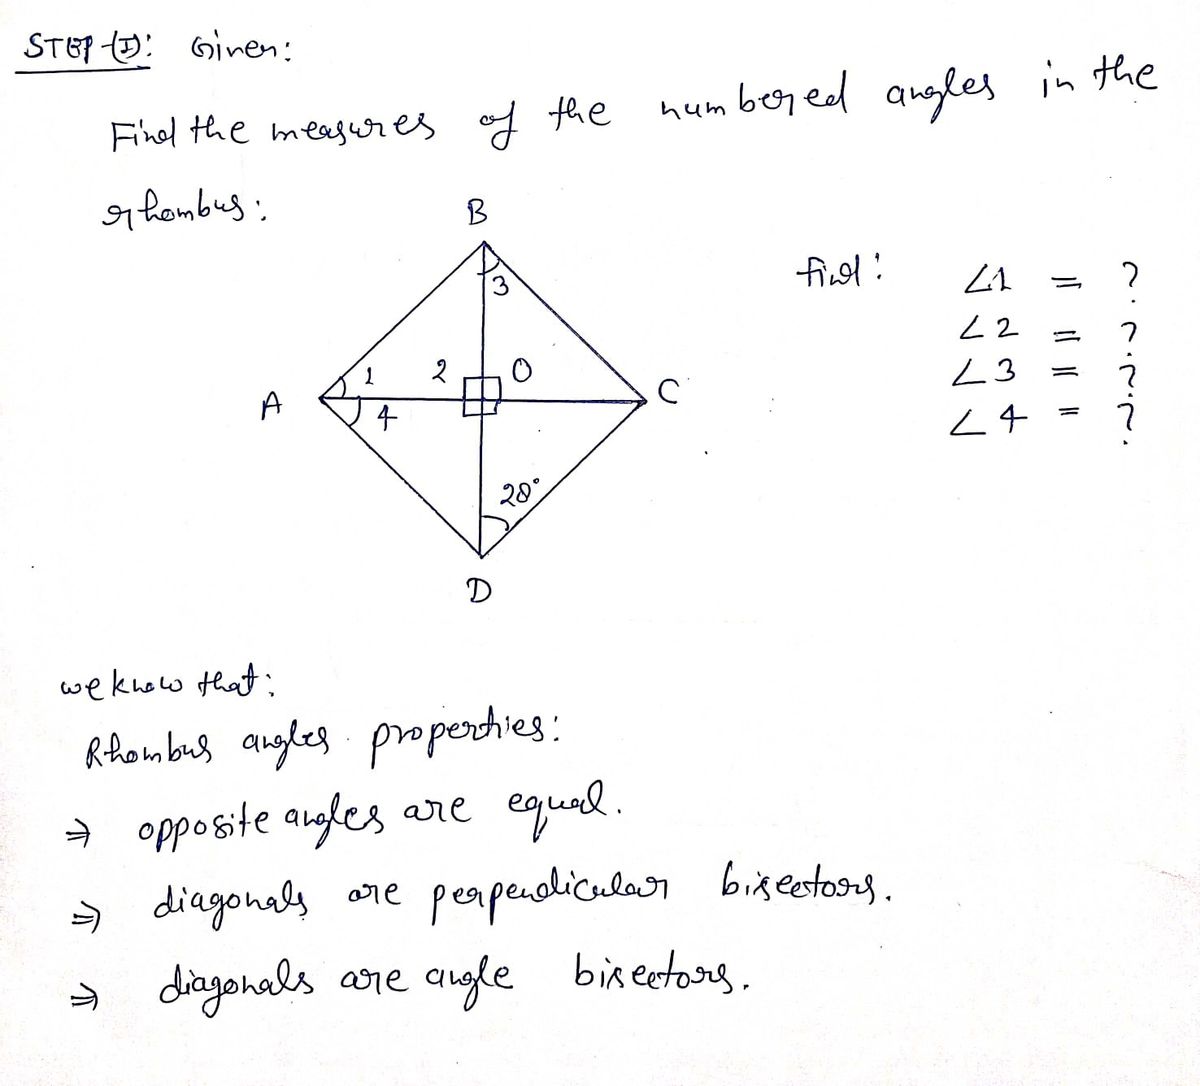 STEP-(I): Given:
Find the measures of the numbered angles in the
rhombus:
B
find:
∠1 = ?
3
∠2 = ?
1 2 O
∠3 = ?
A
C
4
∠4 = ?
28°
D
we know that:
Rhombus angles properties:
⇒ opposite angles are equal.
⇒ diagonals are perpendicular bisectors.
⇒ diagonals are angle bisectors.